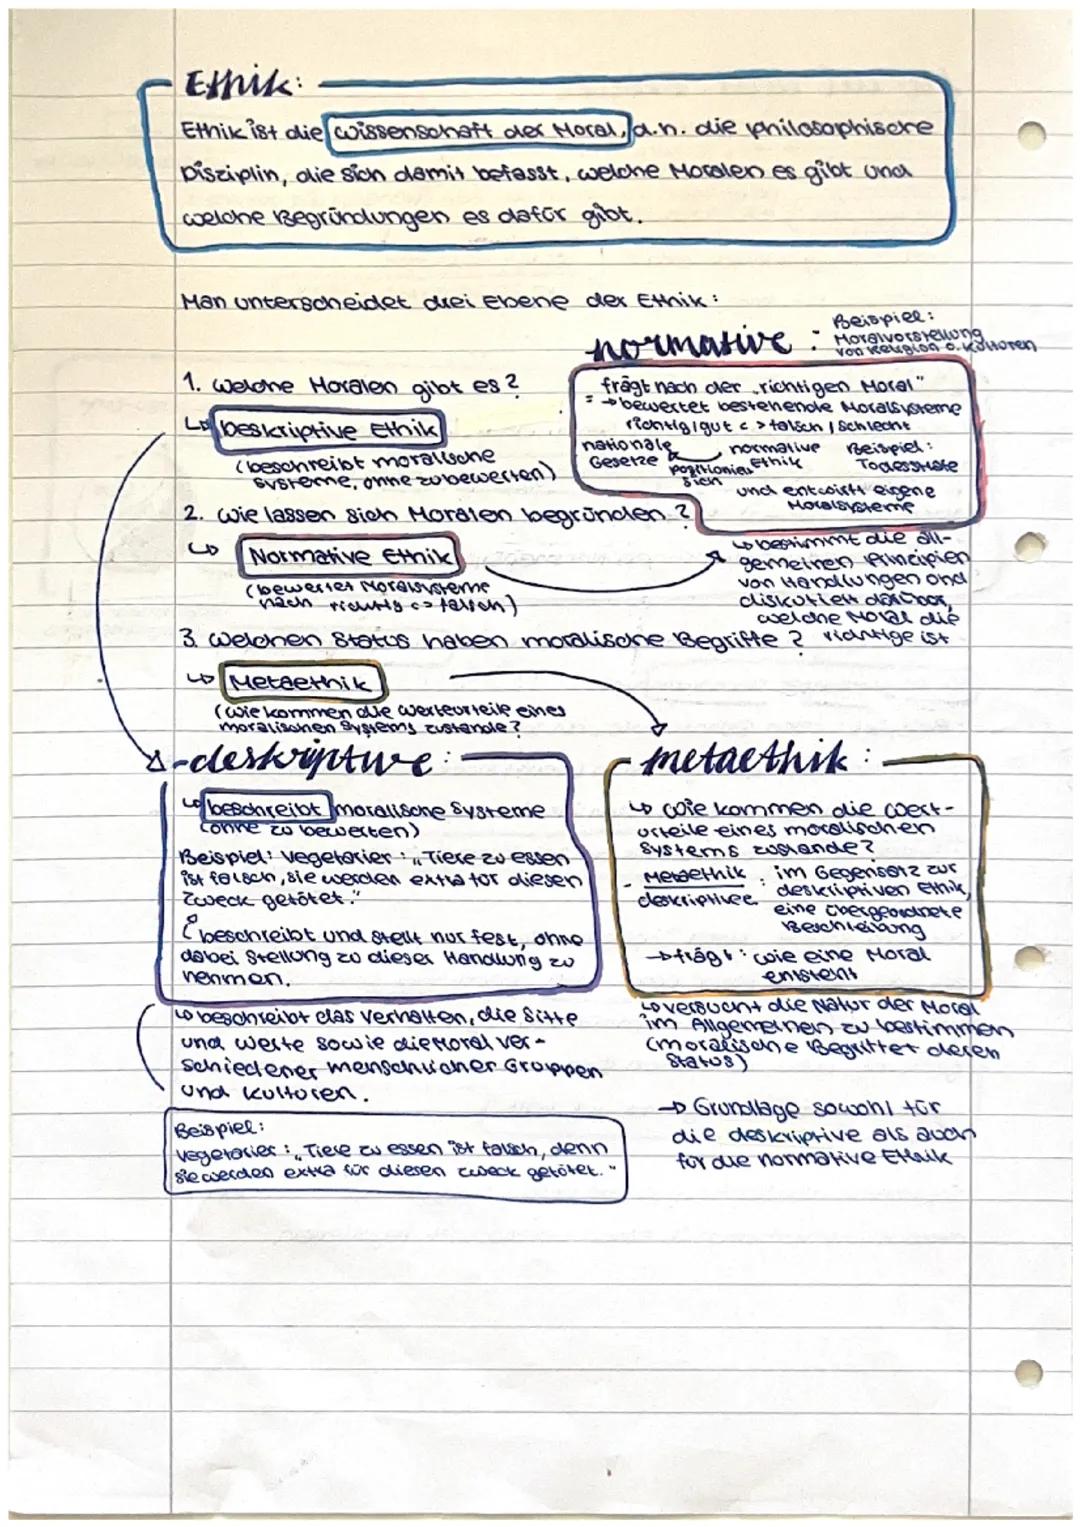 Ethik:
Ethik ist die Wissenschaft der Moral, d.h. die philosophische
Disziplin, die sich damit befasst, welche Moralen es gibt und
welche Begründungen es dafür gibt.
Man unterscheidet drei Ebene der Ethik:
normative:
Beispiel:
Moralvorstellung
von Religion o. Kulturen
frägt nach der „richtigen Moral"
= → bewertet bestehende Moralsysteme
richtig/gut <-> falsch / schlecht
nationale Gesetze
positioniert sich
normative Ethik
Beispiel:
Todesstrafe
und entwirft eigene
Moralsysteme
↳ bestimmt die all-
gemeinen Principien
von Handlungen und
diskutiert darüber,
welche Moral die
richtige ist
1. Welche Moralen gibt es?
↳ Deskriptive Ethik
(beschreibt moralische
systeme, ohne zu bewerten)
2. Wie lassen sich Moralen begründen?
↳ Normative Ethik
(bewertet Moralsysteme
nach richtig <-> falsch)
3. Welchen Status haben moralische Begriffe?
↳ Metaethik
(Wie kommen die Werteurteile eines
moralischen Systems zustande?
-deskriptive:
↳ beschreibt moralische Systeme
(ohne zu bewerten)
Beispiel: Vegetarier: „Tiere zu essen
ist falsch, sie werden extra für diesen
Zweck getötet."
beschreibt und stellt nur fest, ohne
dabei Stellung zu dieser Handlung zu
nehmen.
↳ beschreibt das Verhalten, die Sitte
und Werte sowie die Moral ver-
schiedener menschlicher Gruppen
und Kulturen.
Beispiel:
Vegetarier: „Tiere zu essen ist falsch, denn
sie werden extra für diesen Zweck getötet."
metaethik:
↳ Wie kommen die Wert-
urteile eines moralischen
Systems zustande?
- Metaethik : im Gegensatz zur
deskriptive E. deskriptiven Ethik,
eine übergeordnete
Beschreibung
→ frägt: wie eine Moral
entsteht
↳ versucht die Natur der Moral
im Allgemeinen zu bestimmen
(moralische Begriffe & deren
Status)
→ Grundlage sowohl für
die deskriptive als auch
für die normative Ethik